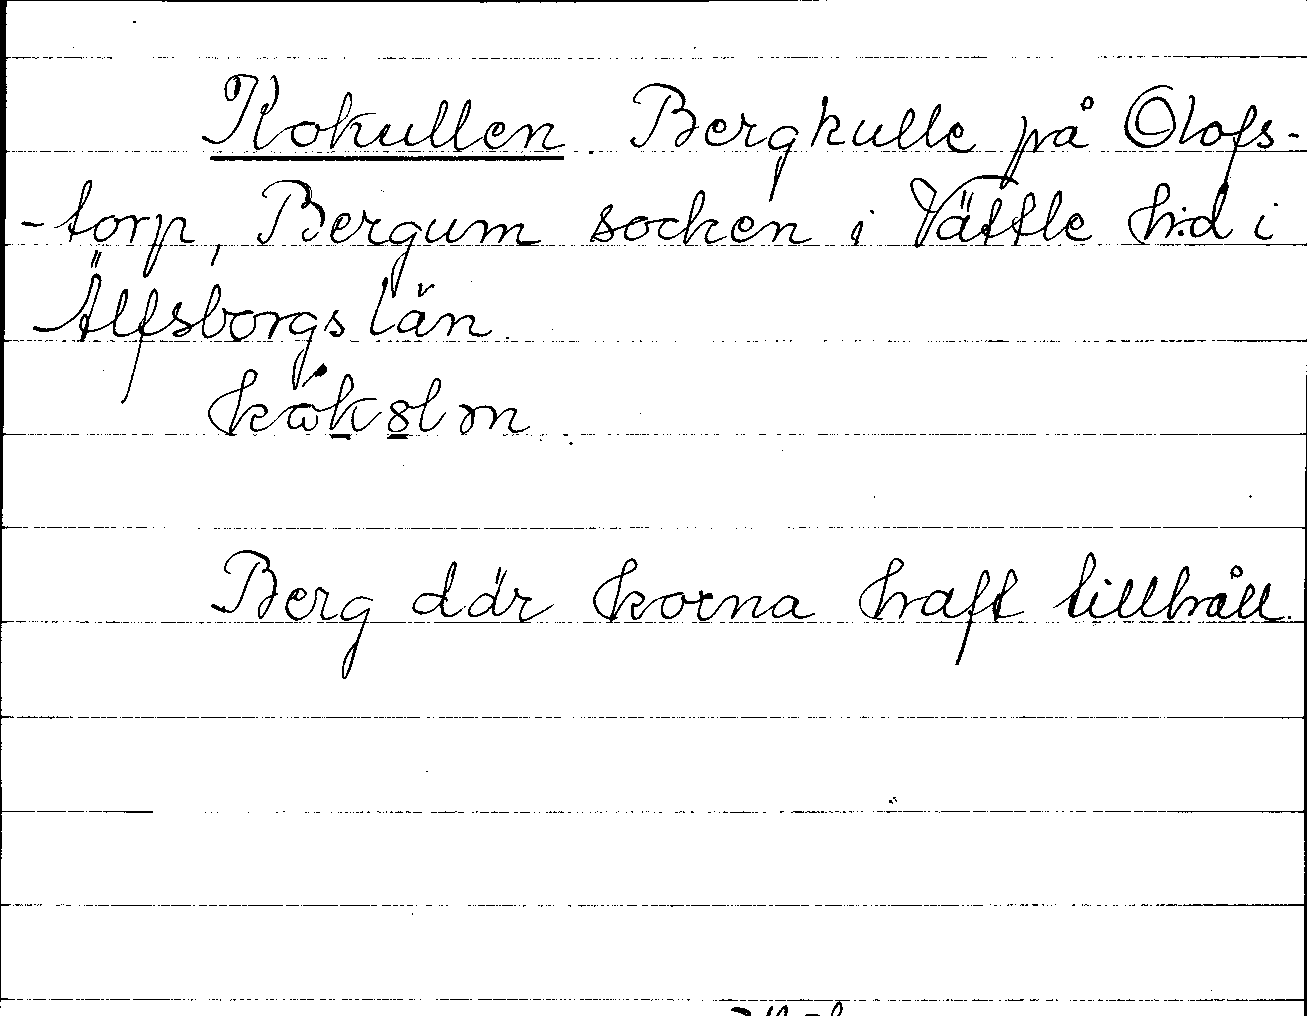 Kokullen. Bergkulle på Olofs-
-torp, Bergum socken i Vättle h:d i
Älfsborgs län.
Berg där korna haft tillhåll.